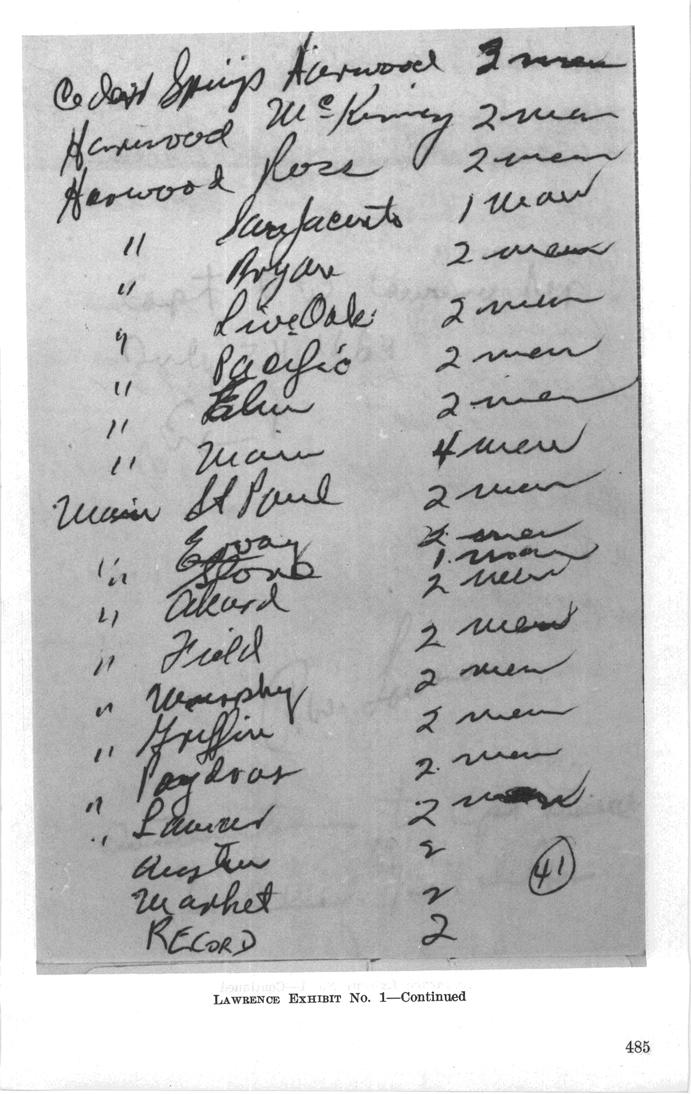 Cedar Springs Harwood 3 men
Harwood McKinney 2 men
Harwood Ross 2 men
" San Jacinto 1 man
" Bryan 2 men
" Live Oak 2 men
" Pacific 2 men
" Elm 2 men
" Main 4 men
Main St Paul 2 men
" Ervay 2 men
" Stone 1 man
" Akard 2 men
" Field 2 men
" Murphy 2 men
" Griffin 2 men
" Poydras 2 men
" Lamar 2 men
Austin 2
Market 2
41
RECORD 2
LAWRENCE EXHIBIT No. 1—Continued
485